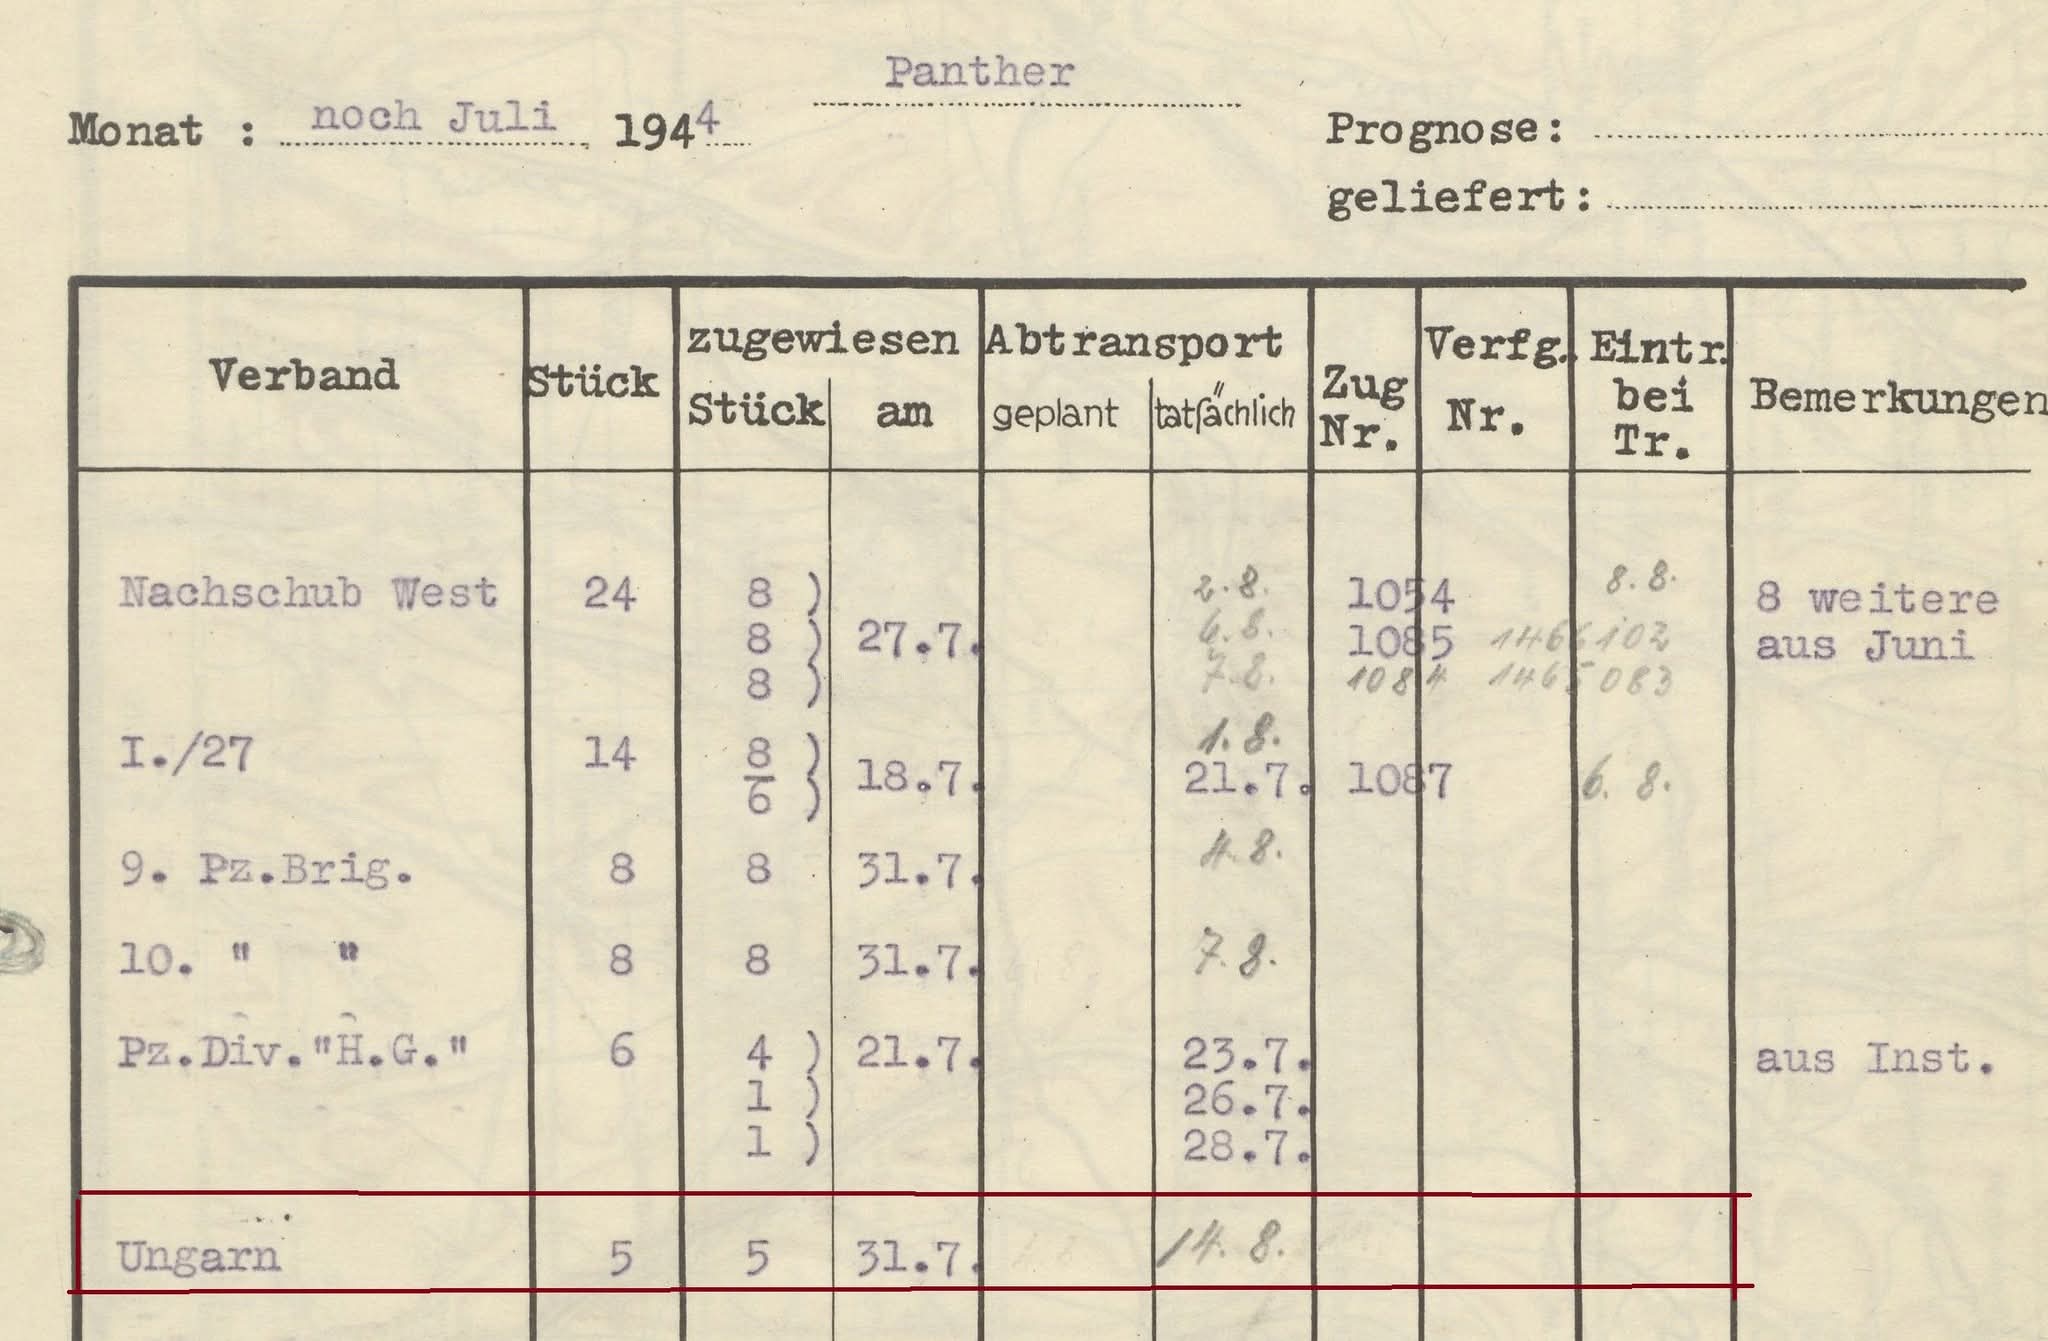 Panther
Monat : noch Juli 1944
Prognose:
geliefert:
Verband Stück zugewiesen Stück am Abtransport geplant tatsächlich Zug Nr. Verfg. Nr. Eintr. bei Tr. Bemerkungen
Nachschub West 24 8 ) 2.8. 1054 8.8. 8 weitere
8 ) 27.7. 6.8. 1085 1466102 aus Juni
8 ) 7.8. 1084 1465083
1.8.
I./27 14 8 )
6 ) 18.7. 21.7. 1087 6. 8.
9. Pz.Brig. 8 8 31.7. 4.8.
10. " " 8 8 31.7. 7.8.
Pz.Div."H.G." 6 4 ) 21.7. 23.7. aus Inst.
1 ) 26.7.
1 ) 28.7.
Ungarn 5 5 31.7. 14. 8.